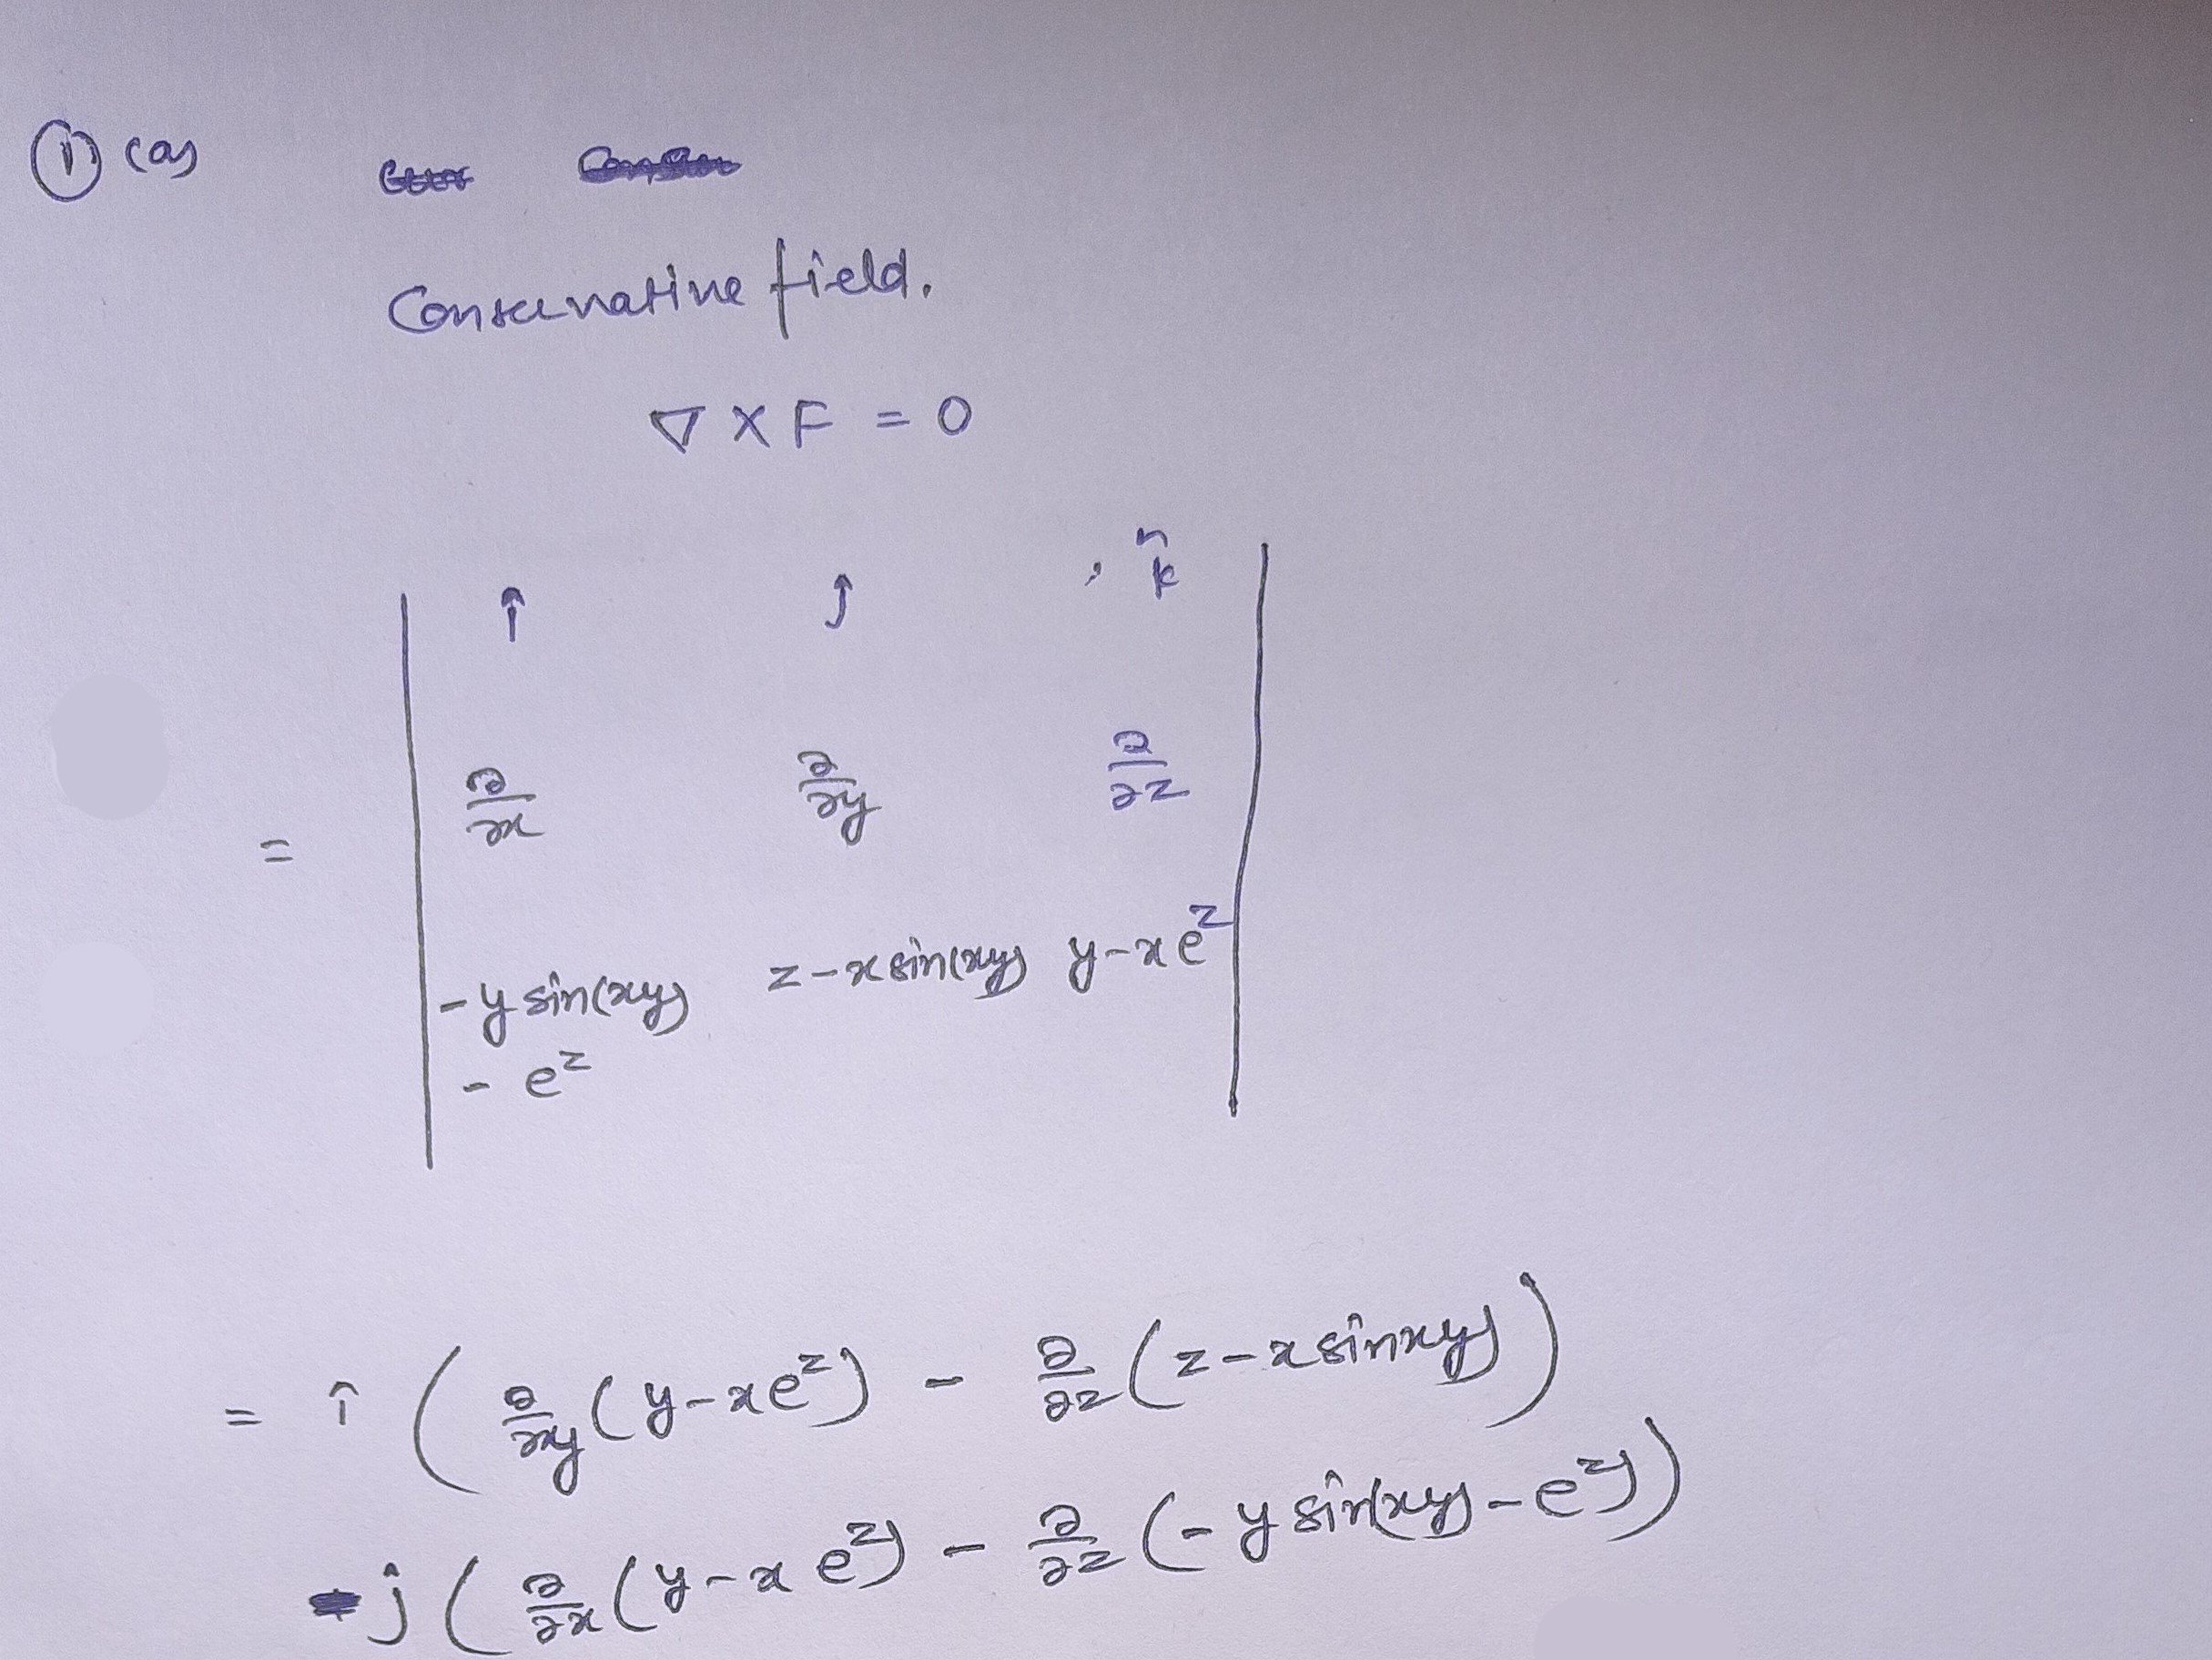 ① (a)
Conservative field.
∇ × F = 0
î ĵ k̂
= ∂/∂x ∂/∂y ∂/∂z
-y sin(xy) z-x sin(xy) y-xe^z
- e^z
= î ( ∂/∂y (y-xe^z) - ∂/∂z (z-x sinxy) )
- j ( ∂/∂x (y-x e^z) - ∂/∂z (-y sin(xy)-e^z) )